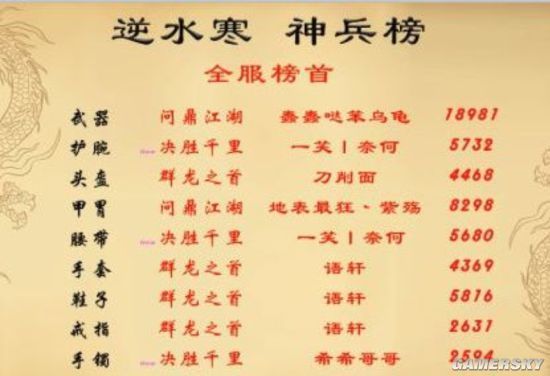 逆水寒 神兵榜
全服榜首
武器 问鼎江湖 蠢蠢哒笨乌龟 18981
护腕 决胜千里 一笑丨奈何 5732
头盔 群龙之首 刀削面 4468
甲胄 问鼎江湖 地表最狂·紫殇 8298
腰带 决胜千里 一笑丨奈何 5680
手套 群龙之首 语轩 4369
鞋子 群龙之首 语轩 5816
戒指 群龙之首 语轩 2631
手镯 决胜千里 希希哥哥 2594
GAMERSKY